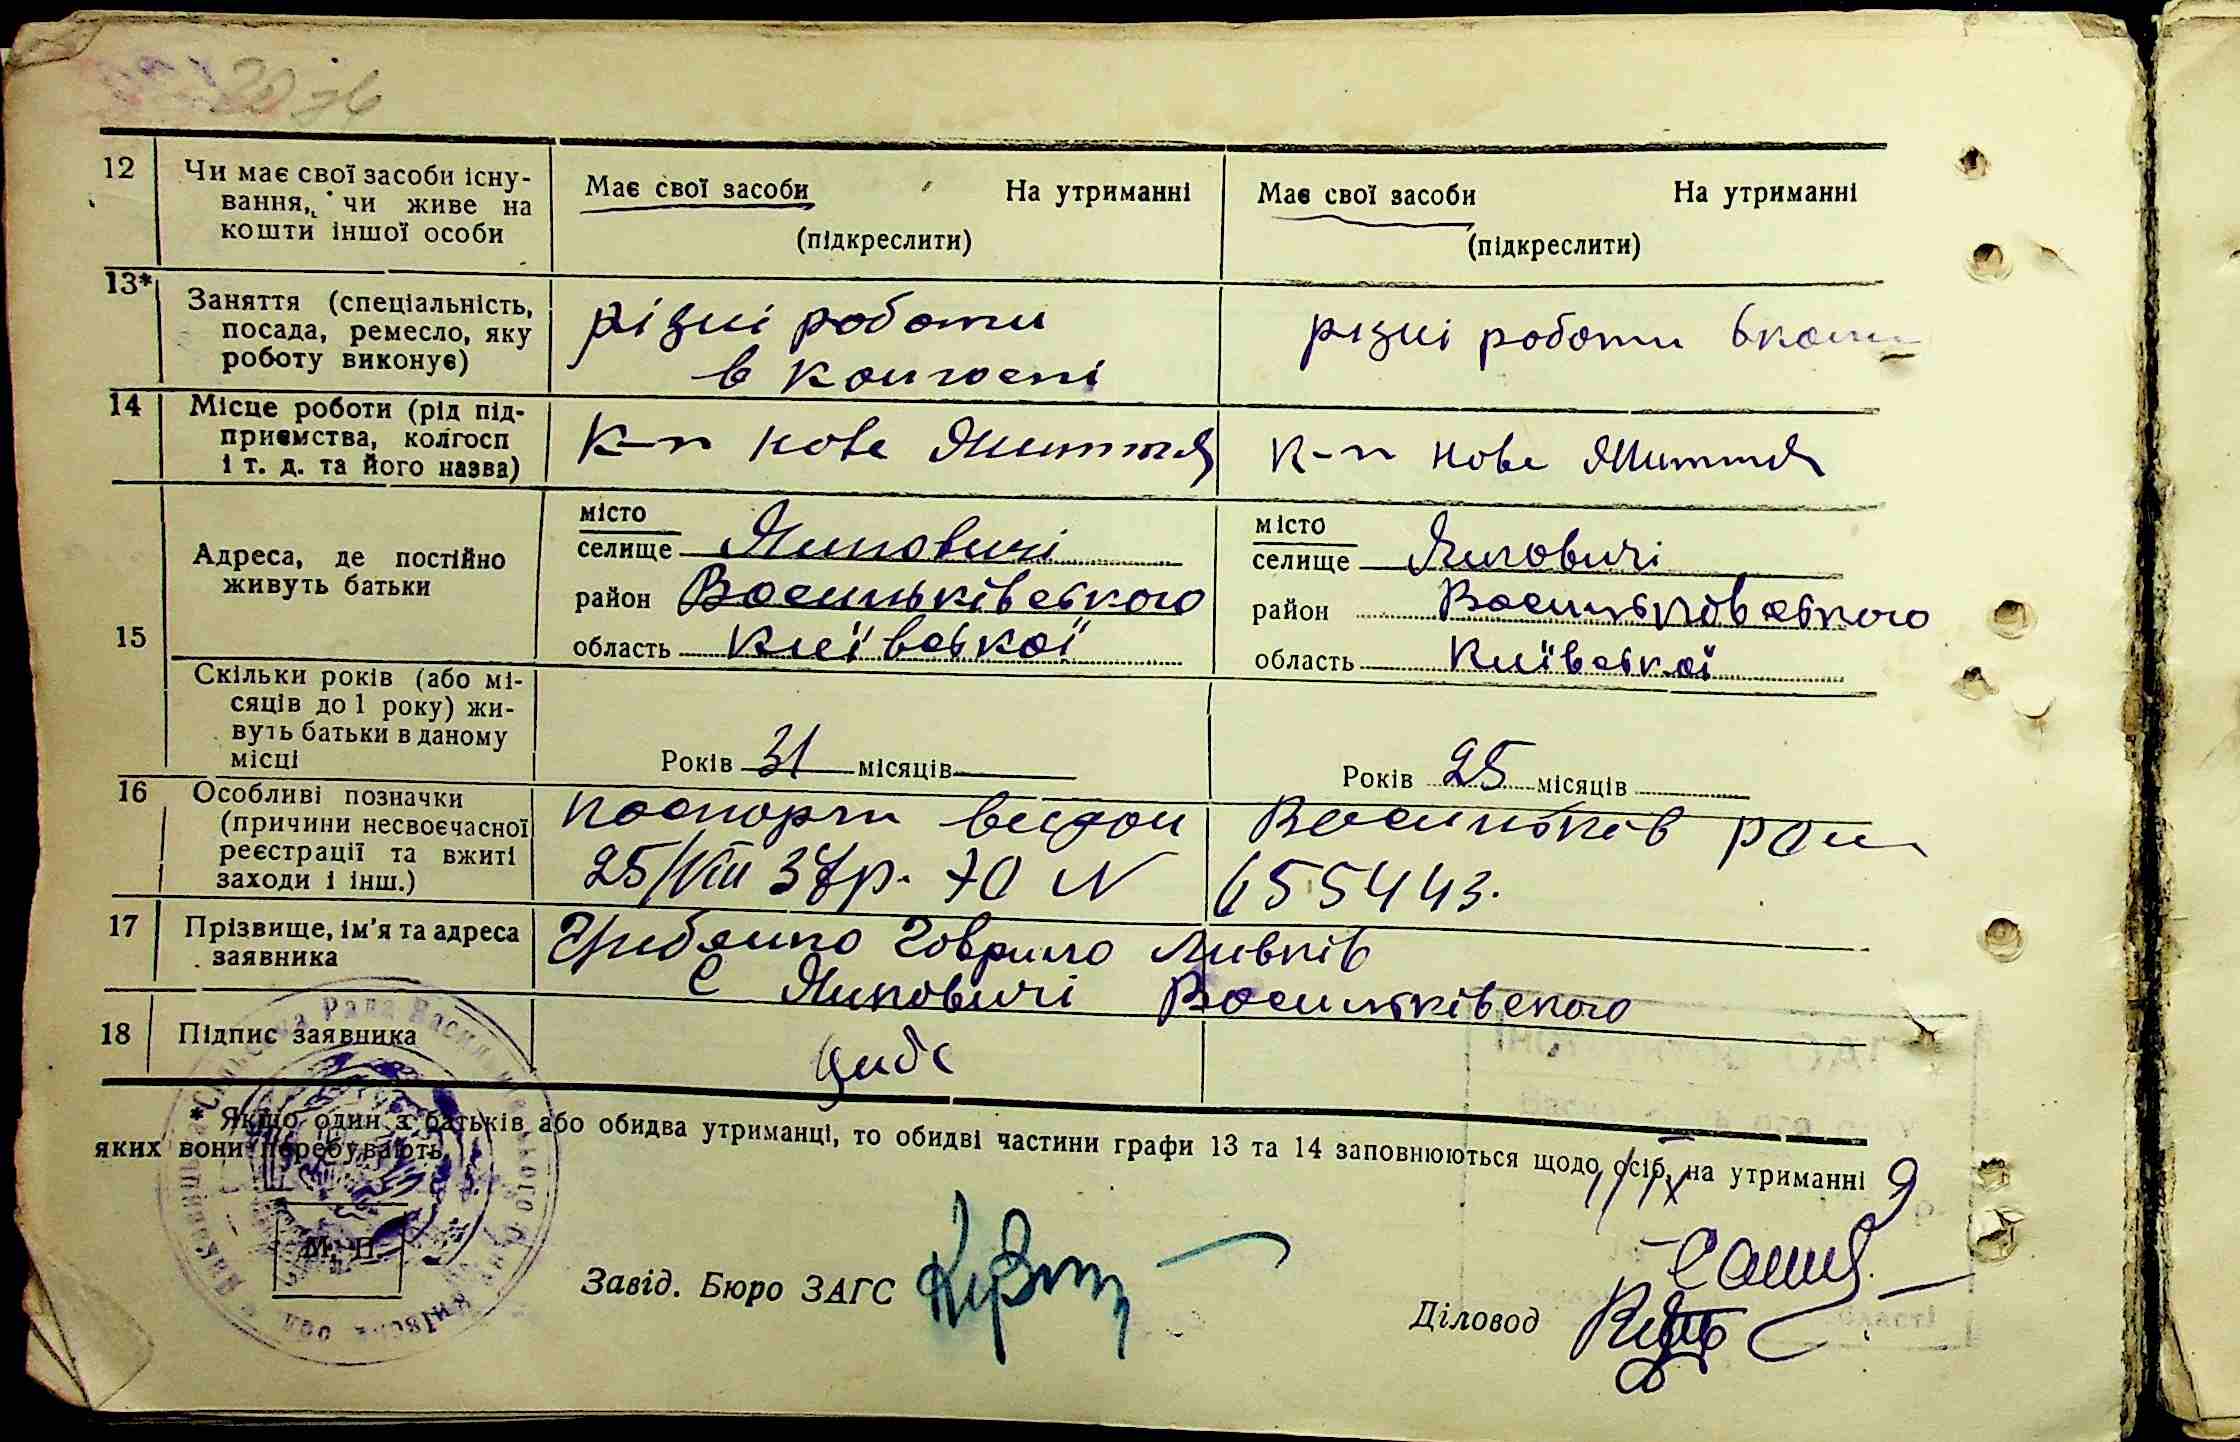 12 Чи має свої засоби існу-
вання, чи живе на
кошти іншої особи
Має свої засоби На утриманні
(підкреслити)
Має свої засоби На утриманні
(підкреслити)
13* Заняття (спеціальність,
посада, ремесло, яку
роботу виконує)
різні роботи
в колгоспі
різні роботи
14 Місце роботи (рід під-
приємства, колгосп
і т. д. та його назва)
К-п нове Життя
К-п нове Життя
15 Адреса, де постійно
живуть батьки
місто
селище
район Васильківського
область Київської
місто
селище
район Васильківського
область Київської
Скільки років (або мі-
сяців до 1 року) жи-
вуть батьки в даному
місці
Років 31 місяців
Років 25 місяців
16 Особливі позначки
(причини несвоєчасної
реєстрації та вжиті
заходи і інш.)
паспорт видан Васильків
25/VIII 37р. N 655443.
17 Прізвище, ім'я та адреса
заявника
Говрило
с Васильківского
18 Підпис заявника
* Якщо один з батьків або обидва утриманці, то обидві частини графи 13 та 14 заповнюються щодо осіб, на утриманні
яких вони перебувають.
М. П.
Завід. Бюро ЗАГС
Діловод